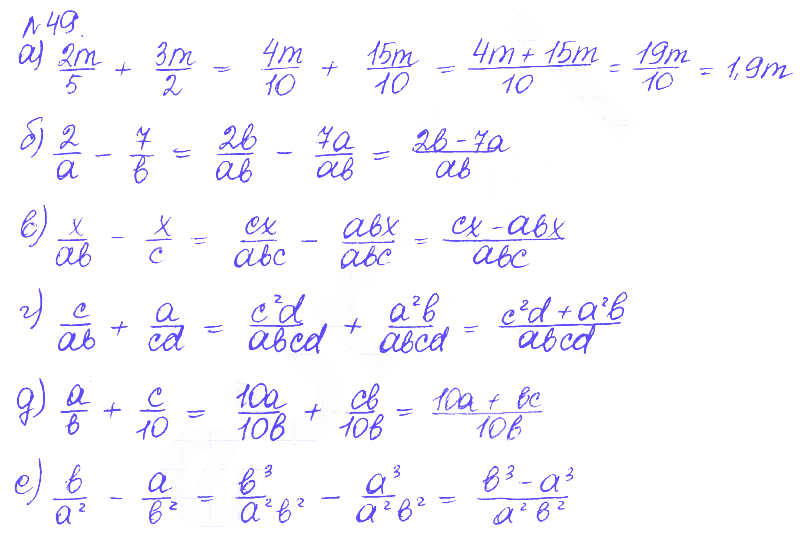 №49.
а) 2m/5 + 3m/2 = 4m/10 + 15m/10 = (4m + 15m)/10 = 19m/10 = 1,9m
б) 2/a - 7/b = 2b/ab - 7a/ab = (2b - 7a)/ab
в) x/ab - x/c = cx/abc - abx/abc = (cx - abx)/abc
г) c/ab + a/cd = c²d/abcd + a²b/abcd = (c²d + a²b)/abcd
д) a/b + c/10 = 10a/10b + cb/10b = (10a + bc)/10b
е) b/a² - a/b² = b³/a²b² - a³/a²b² = (b³ - a³)/a²b²